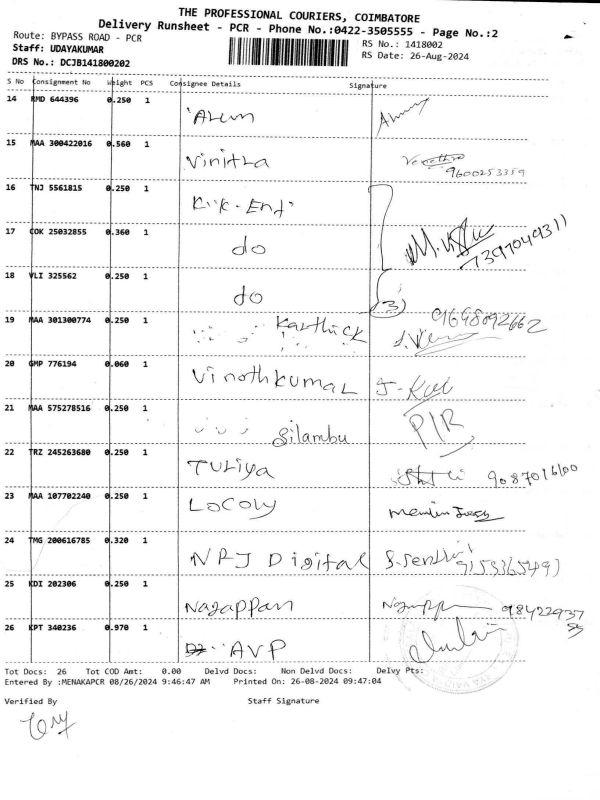 THE PROFESSIONAL COURIERS, COIMBATORE
Delivery Runsheet - PCR - Phone No.:0422-3505555 - Page No.:2
Route: BYPASS ROAD - PCR
RS No.: 1418002
Staff: UDAYAKUMAR
RS Date: 26-Aug-2024
DRS No.: DCJB141800202
S No Consignment No Weight PCS Consignee Details Signature
14 RMD 644396 0.250 1
15 MAA 300422016 0.560 1 Vinitha
9600253359
16 TNJ 5561815 0.250 1
17 COK 25032855 0.360 1 do
7397049311
18 VLI 325562 0.250 1 do (3)
19 MAA 301300774 0.250 1 Karthick 9698092662
20 GMP 776194 0.060 1 Vinothkumar
21 MAA 575278516 0.250 1 Silambu P/R
22 TRZ 245263680 0.250 1 Tuliya
23 MAA 107702240 0.250 1
24 TMG 200616785 0.320 1 NPJ Digital
25 KDI 202306 0.250 1 Nagappan 9842293755
26 KPT 340236 0.970 1 AVP
Tot Docs: 26 Tot COD Amt: 0.00 Delvd Docs: Non Delvd Docs: Delvy Pts:
Entered By :MENAKAPCR 08/26/2024 9:46:47 AM Printed On: 26-08-2024 09:47:04
Verified By Staff Signature